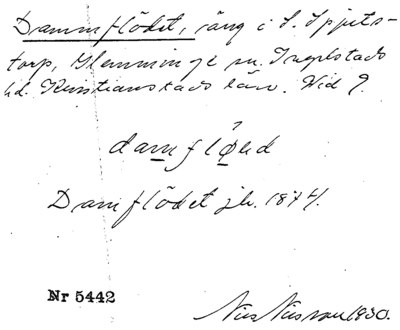 Dammflödet, äng i S. Spjuts-
torp, Glemminge sn. Ingelstads
hd. Kristianstads län. Vid 9.
damflød
Damflödet jb. 1874.
Nr 5442
Nils Nilsson 1930.